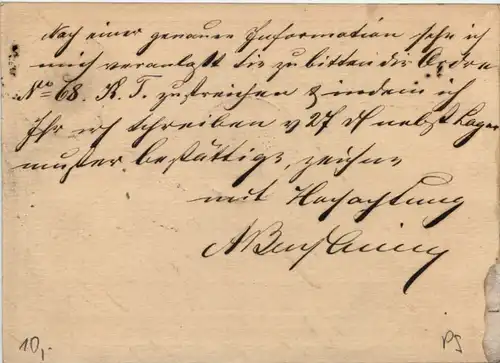 Nach einer genauen Information sehe ich
mich veranlaßt Sie zu bitten die Ordre
No 68. R. T. zu streichen & indem ich
Ihr Schreiben v 27 d nebst Lager
muster bestättige, zeichne
mit Hochachtung
10,-
PS